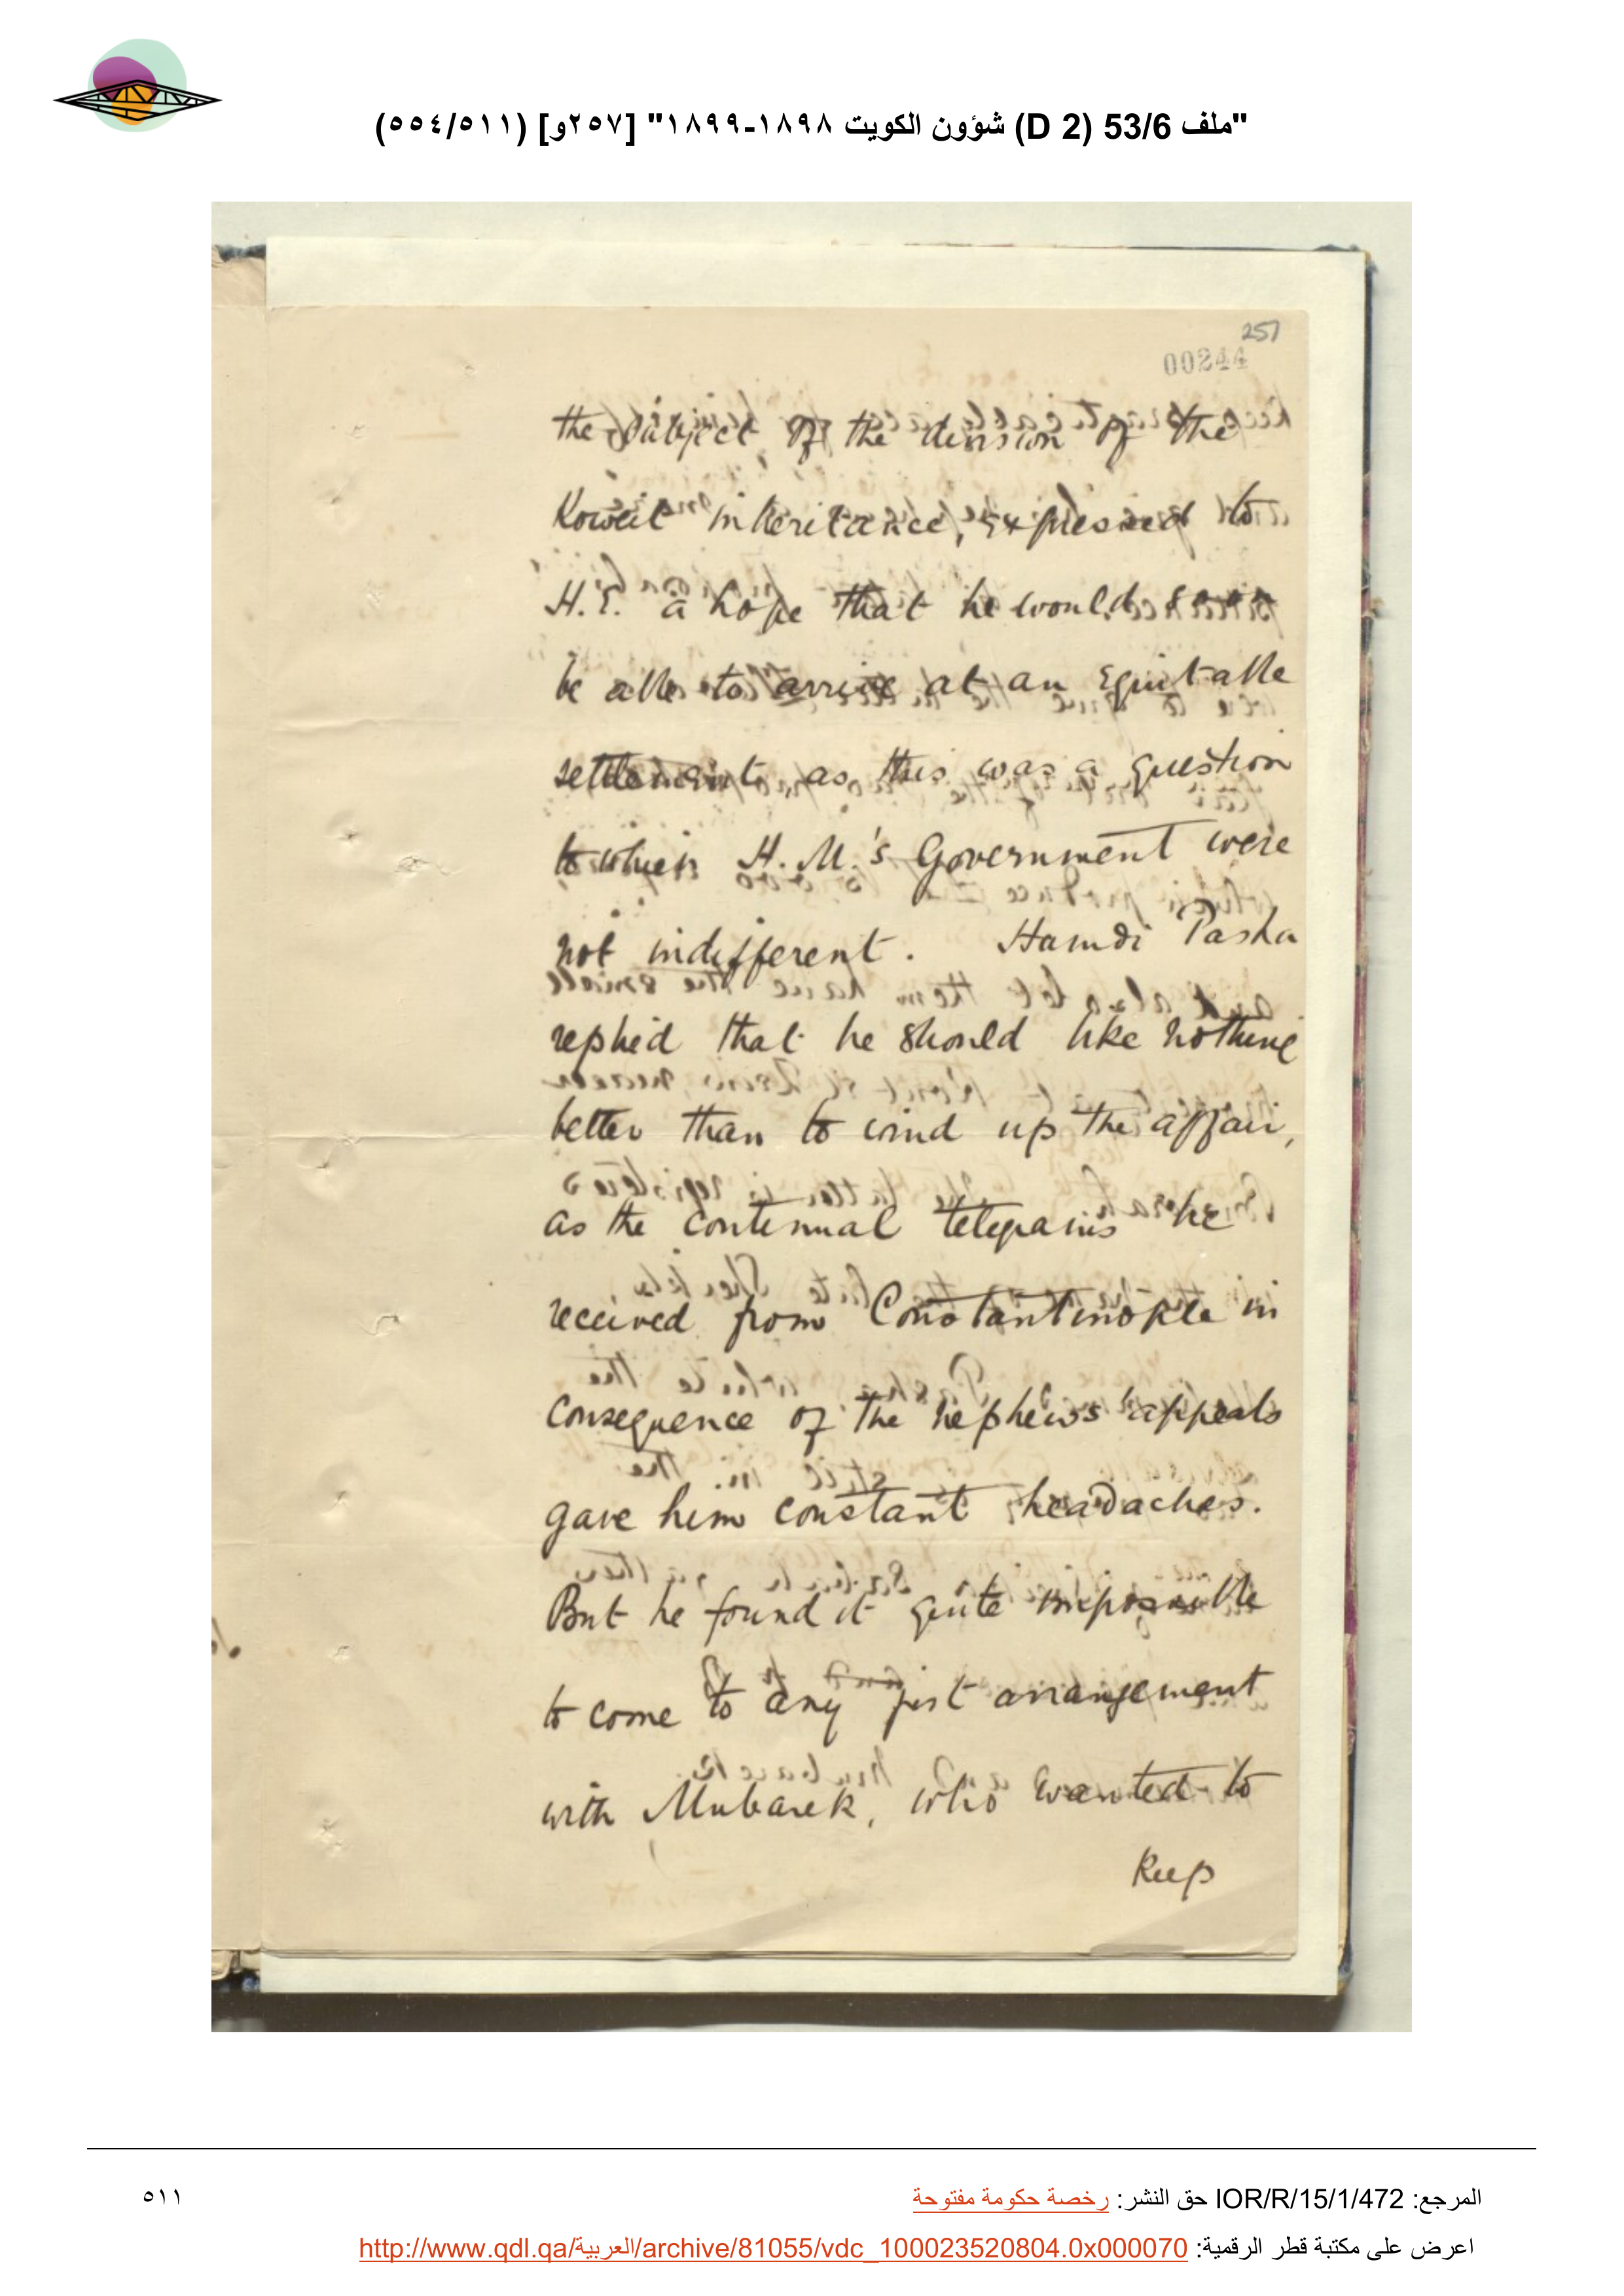 "ملف 53/6 (D 2) شؤون الكويت ١٨٩٨-١٨٩٩" [٢٥٧و] (٥٥٤/٥١١)
257
00244
the subject of the division of the
Koweit inheritance, expressed to
H.E. a hope that he would soon
be able to arrive at an equitable
settlement, as this was a question
to which H.M.'s Government were
not indifferent. Hamdi Pasha
replied that he should like nothing
better than to wind up the affair,
as the continual telegrams he
received from Constantinople in
consequence of the nephews' appeals
gave him constant headaches.
But he found it quite impossible
to come to any just arrangement
with Mubarek, who wanted to
Keep
المرجع: IOR/R/15/1/472 حق النشر: رخصة حكومة مفتوحة
٥١١
اعرض على مكتبة قطر الرقمية: http://www.qdl.qa/العربية/archive/81055/vdc_100023520804.0x000070